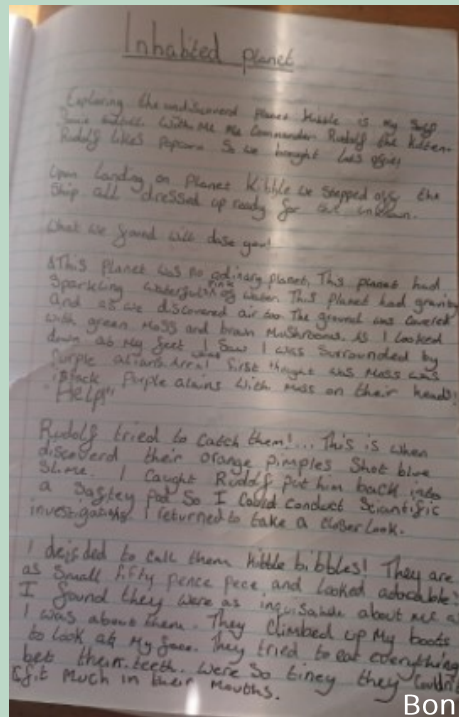 Inhabited planet
Exploring the undiscoverd planet Kibble is my self
With Me Commander Rudolf the Kitten.
Rudolf likes Popcorn So we bought
Upon Landing on Planet Kibble we stepped off the
Ship all dressed up ready for the unknown.
What we found will daze you!
This Planet was no ordinary planet, This planet had
Sparkling waterfulls of Pink water. This Planet had gravity
and as we discovered air too. The ground was covered
with green Moss and brain Mushrooms. As I looked
down at My feet I Saw I was Surrounded by
Purple First thought was Moss was
Purple alains With Moss on their heads!
Help"
Rudolf tried to catch them!... This is when
discoverd their orange pimples Shot blue
Slime. I Caught Rudolf put him back into
a Saftey Pod So I Could Conduct Scientific
investigations. I returned to take a closer look.
I deisded to call them Kibble bibbles! They are
as Small fifty pence pece and looked adorable!
I found they were as about me as
I was about them. They Climbed up My boots
to look at My face. They tried to eat everything
bet their teeth. Were So tiney they Couldn't
fit Much in their Mouths.
Bon